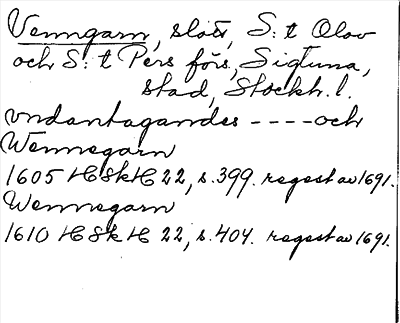 Venngarn, slott, S:t Olov
och S:t Pers förs, Sigtuna,
stad, Stockh. l.
undantagandes ---- och
Wennegarn
1605 HSkH 22, s. 399. regest av 1691.
Wennegarn
1610 HSkH 22, s. 404. regest av 1691.